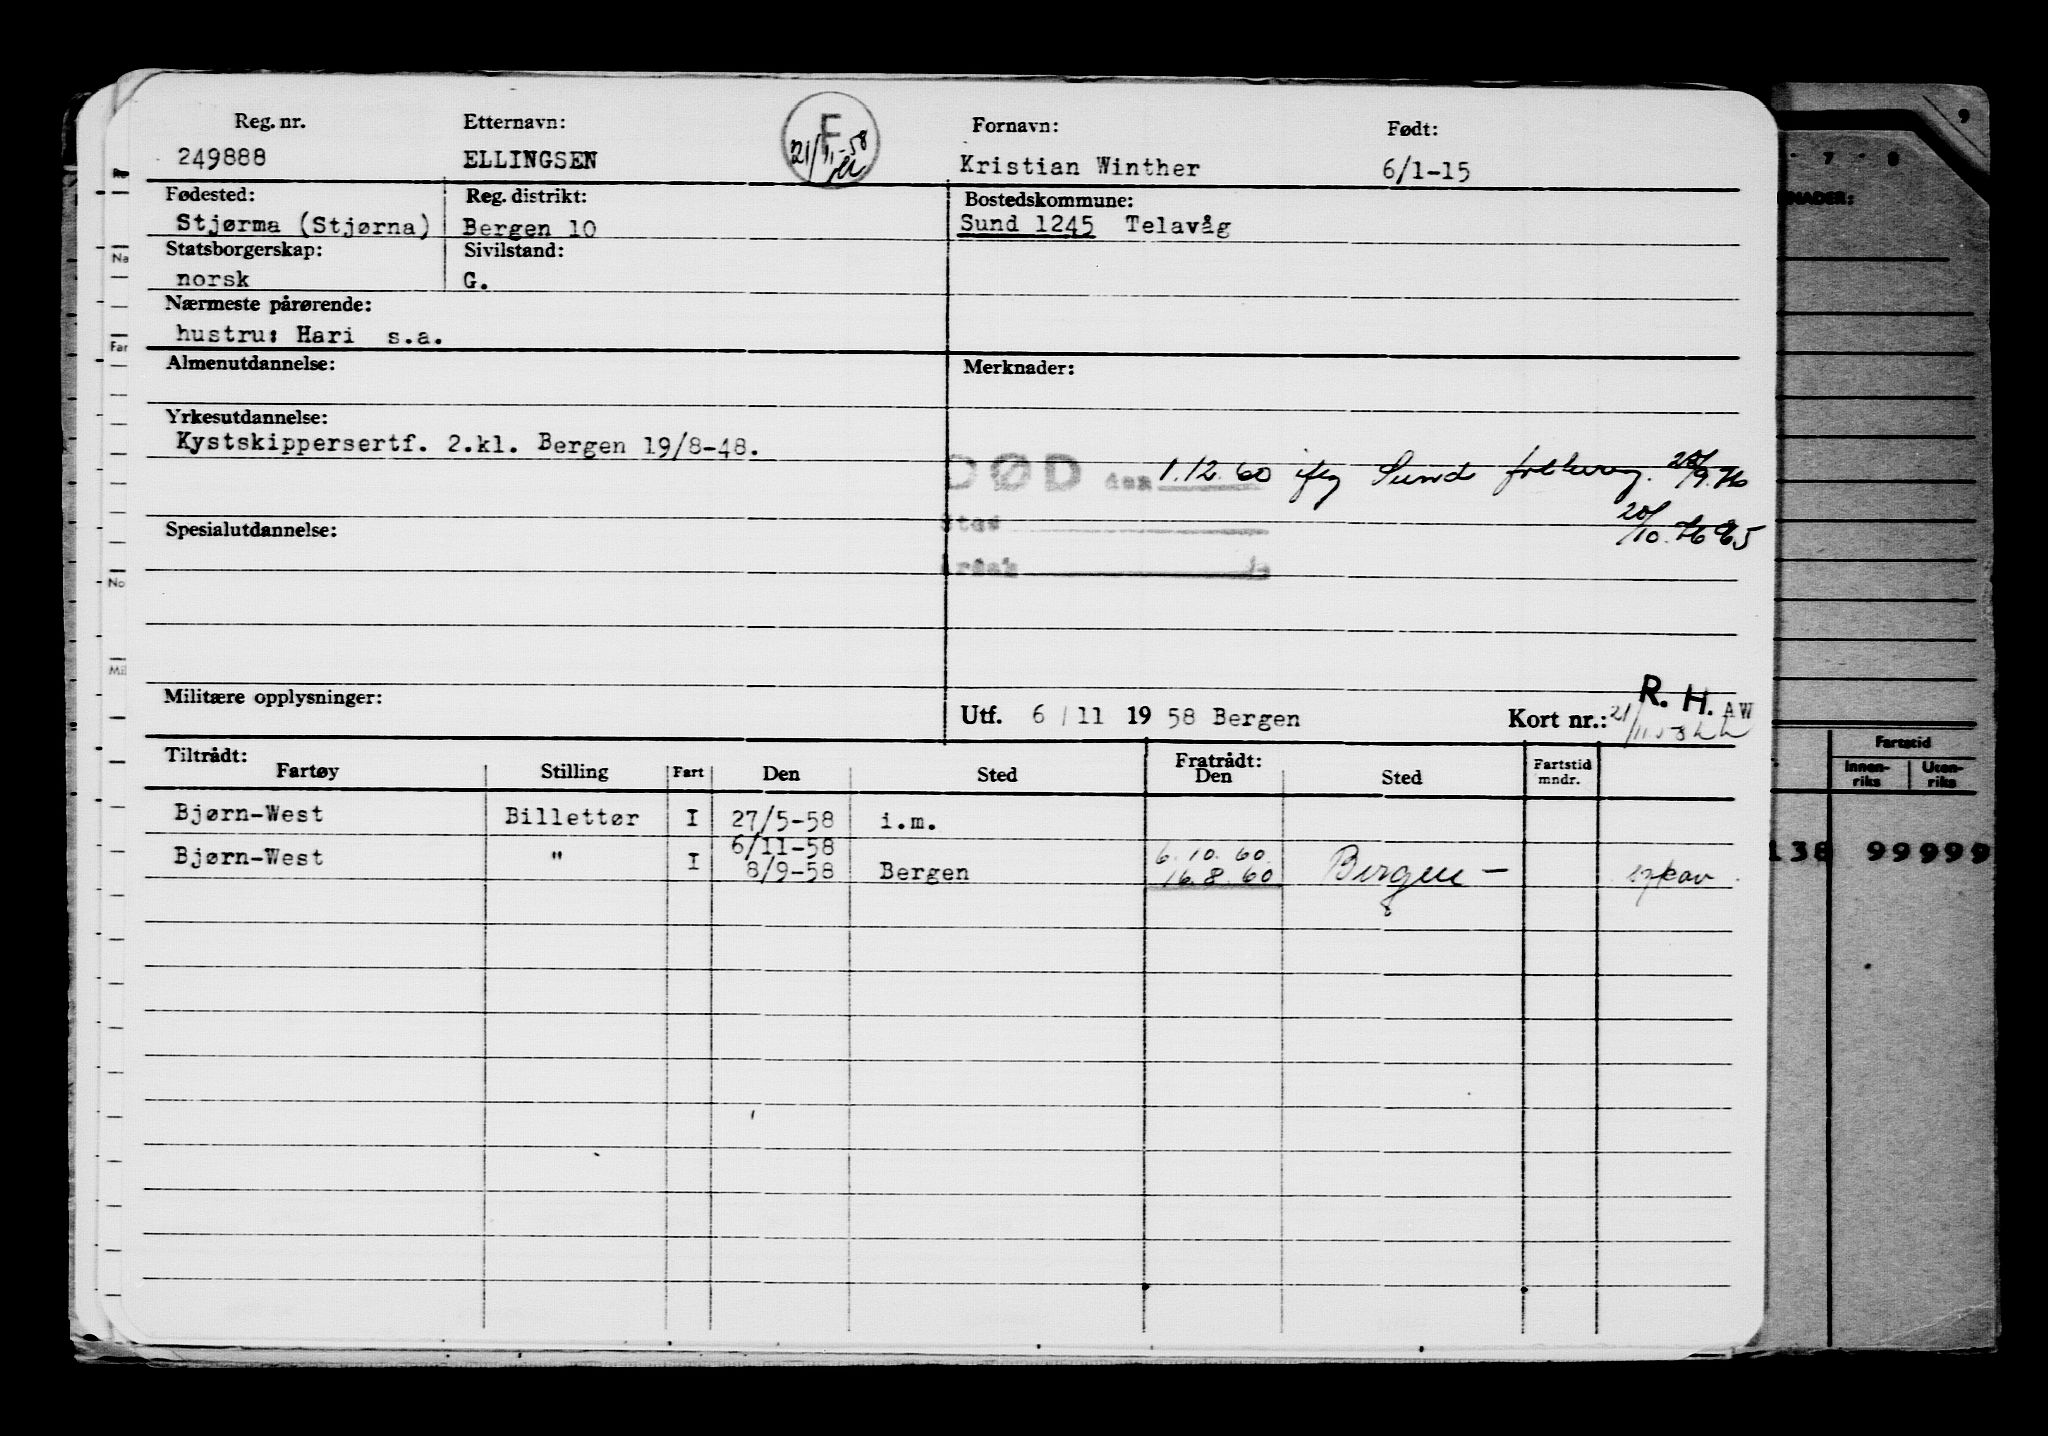 Reg. nr. Etternavn: F Fornavn: Født:
249888 ELLINGSEN 21/11-58 Kristian Winther 6/1-15
Fødested: Reg. distrikt: Bostedskommune:
Stjørma (Stjørna) Bergen 10 Sund 1245 Telavåg
Statsborgerskap: Sivilstand:
norsk G.
Nærmeste pårørende:
hustru: Hari s.a.
Almenutdannelse: Merknader:
Yrkesutdannelse:
Kystskippersertf. 2.kl. Bergen 19/8-48.
DØD den 1.12.60 iflg Sund folkereg.
Sted
Spesialutdannelse:
Årsak
Militære opplysninger:
R. H. AW
Utf. 6/11 1958 Bergen Kort nr.: 21/11-58
Tiltrådt: Fratrådt:
Fartøy Stilling Fart Den Sted Den Sted Fartstid mndr.
Bjørn-West Billettør I 27/5-58 i.m.
6/11-58 6.10.60.
Bjørn-West " I 8/9-58 Bergen 16.8.60 Bergen -
9
7 - 8
NADER:
Fartstid
Innen-riks Uten-riks
138 99999
Na
Far
No
Mil